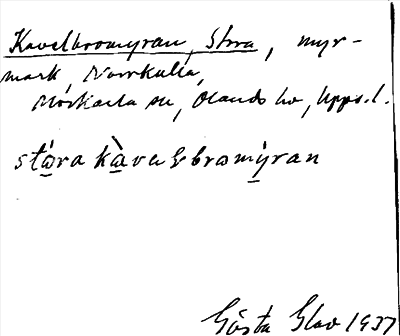 Kavelbromyran, Stora, myr-
mark, Norrkulla,
Morkarla sn, Olands hd, Upps. l.
stὼra kàvaLbrωmýran
Gösta Glav 1937